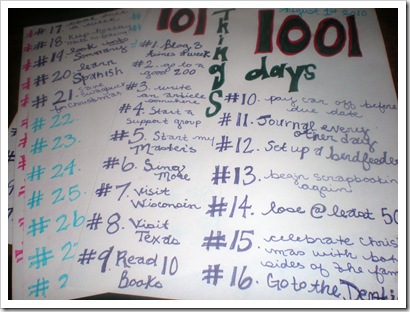 101
Things
1001
days
August 1st 2010
#1. Blog 3
times a week
#2. go to a
good zoo
#3. write
an article
somewhere
#4. Start a
support group
#5. Start my
Master's
#6. Swing
More
#7. Visit
Wisconsin
#8. Visit
Texas
#9. Read 10
Books
#10. pay car off before
due date
#11. Journal every
other day
#12. Set up a birdfeeder
#13. begin scrapbooking
again
#14. lose @ least 50
#15. celebrate Christ
mas with both
sides of the fam
#16. Go to the
#17
#18
#19.
#20. learn
Spanish
#21.
for Christmas
#22.
#23.
#24.
#25.
#26
#2
#2